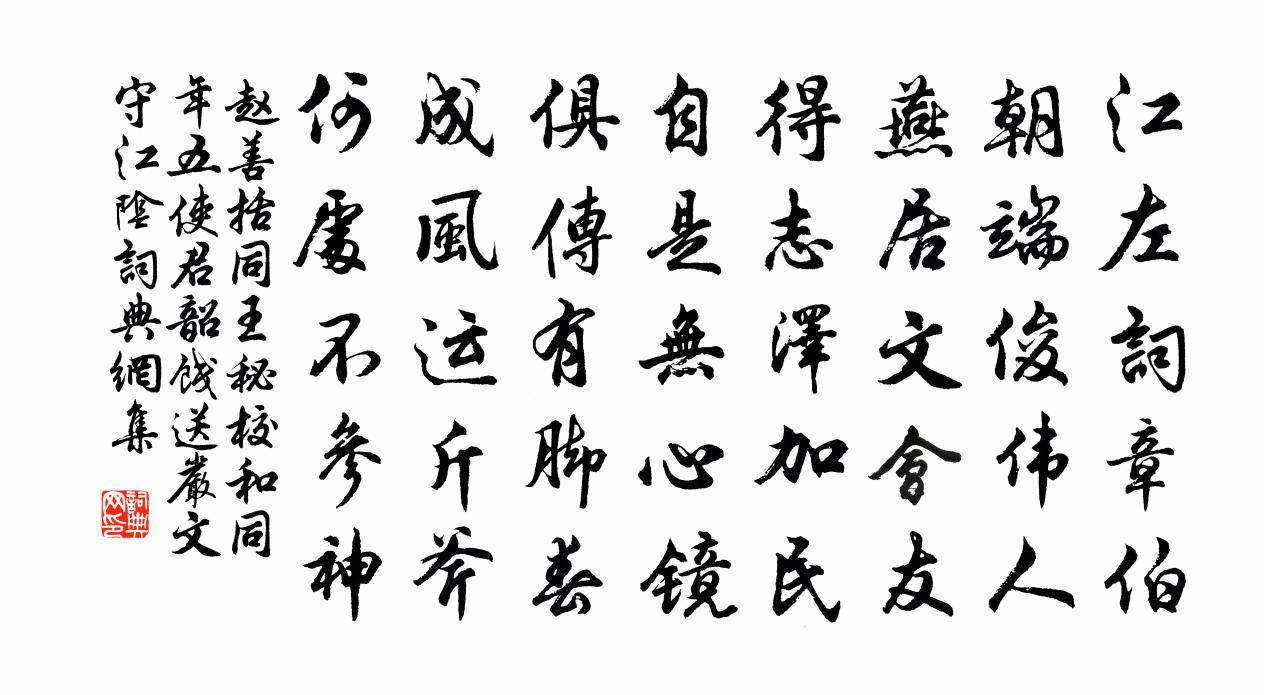 江左詞章伯
朝端俊伟人
燕居文會友
得志澤加民
自是無心镜
俱傳有脚春
成風运斤斧
何處不參神
赵善括同王秘校和同
年五使君韶饯送嚴文
守江陰詞典網集
詞典
网印